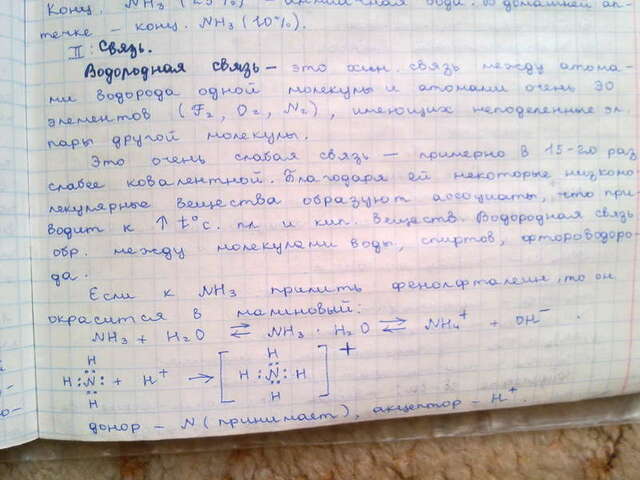 конц. NH3 (25%) – аммиачная вода. В домашней ап-
течке – конц. NH3 (10%).
II: Связь.
Водородная связь – это хим. связь между атома-
ми водорода одной молекулы и атомами очень ЭО
элементов (F2, O2, N2), имеющих неподеленные эл.
пары другой молекулы.
Это очень слабая связь – примерно в 15-20 раз
слабее ковалентной. Благодаря ей некоторые низкомо
лекулярные вещества образуют ассоциаты, что при
водит к ↑ t°с. пл и кип. веществ. Водородная связь
обр. между молекулами воды, спиртов, фтороводоро-
да.
Если к NH3 прилить фенолфталеин, то он
окрасится в малиновый:
NH3 + H2O ⇄ NH3 · H2O ⇄ NH4+ + OH- .
H H
H:N: + H+ → [H:N:H]+
H H
донор – N (принимает), акцептор – H+.